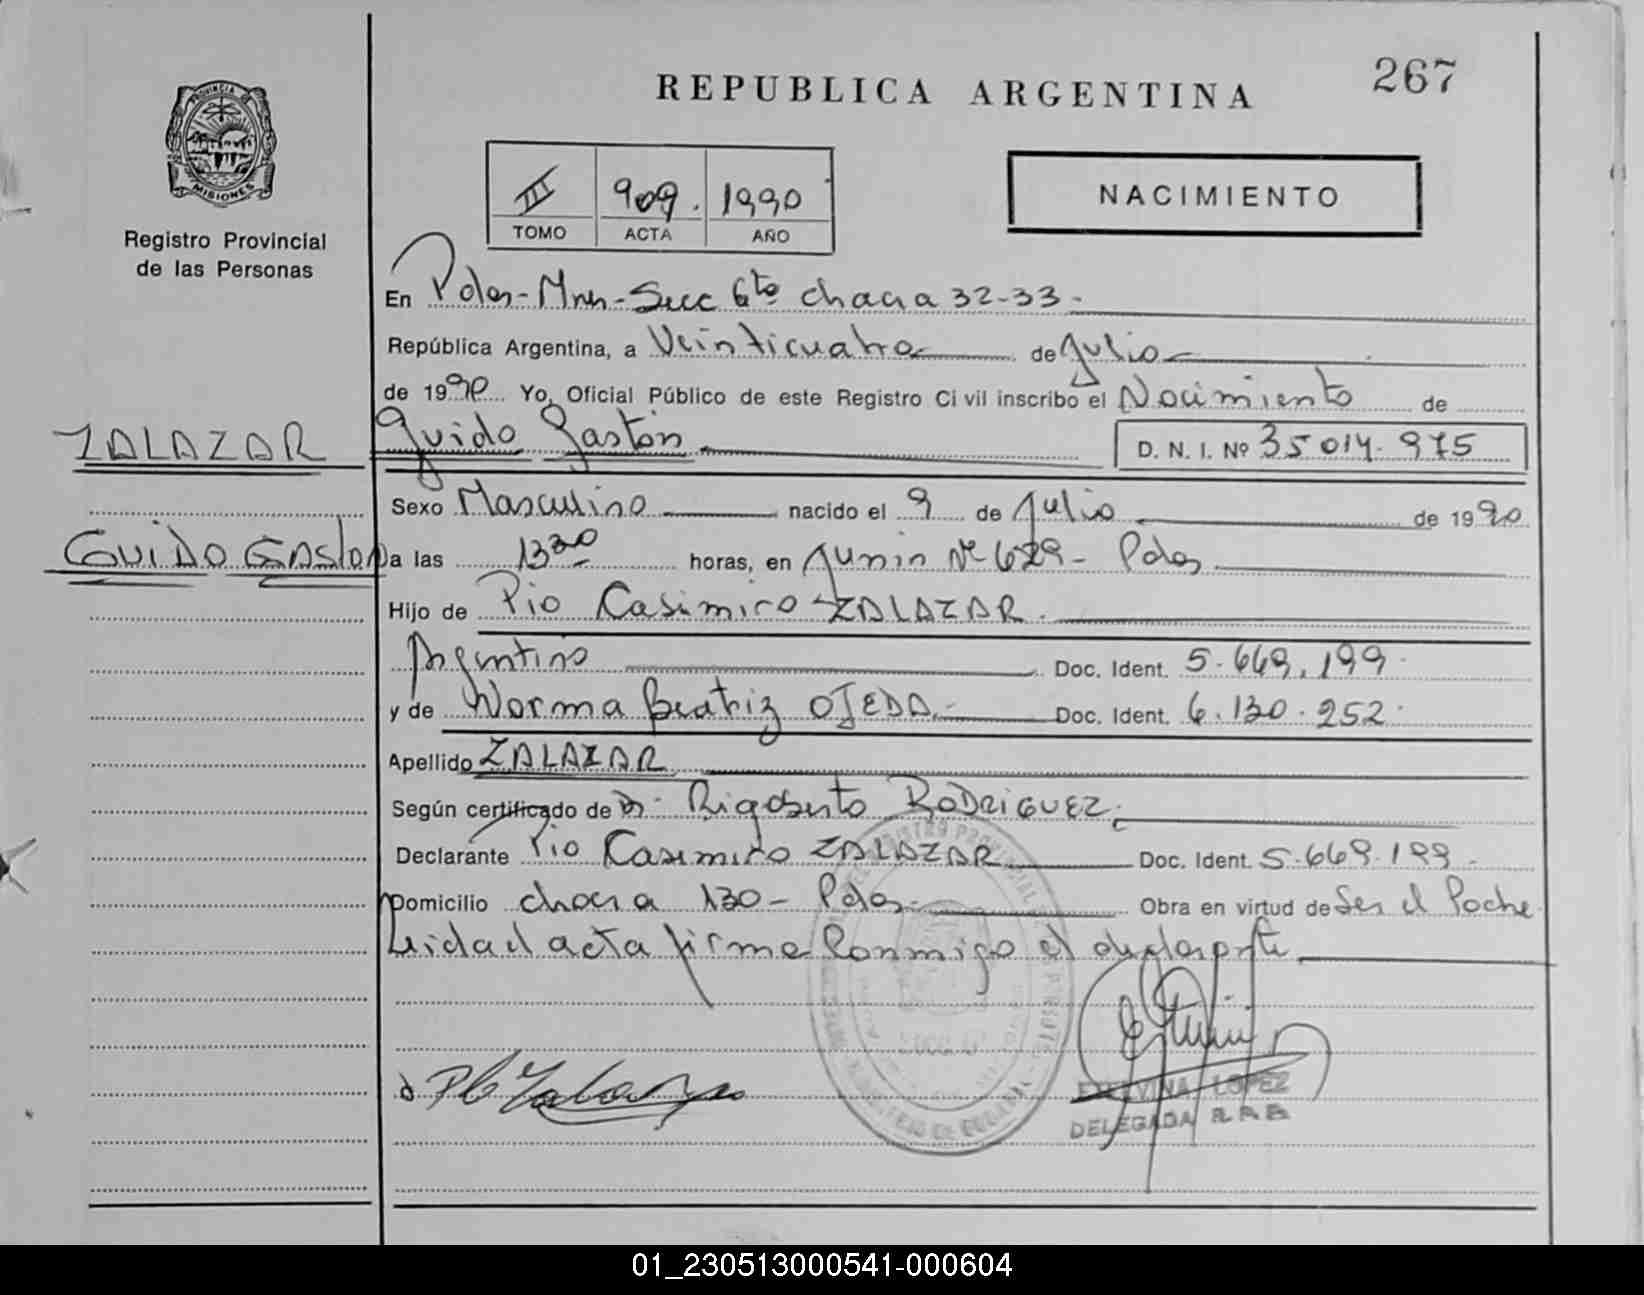 267
REPUBLICA ARGENTINA
PROVINCIA DE
MISIONES
Registro Provincial
de las Personas
III 909. 1990
TOMO ACTA AÑO
NACIMIENTO
En Pdas-Mnes-Secc 6to chacra 32-33-
República Argentina, a Veinticuatro de Julio
de 1990 Yo, Oficial Público de este Registro Civil inscribo el Nacimiento de
ZALAZAR
Guido Gastón D. N. I. Nº 35 014.975
Sexo Masculino nacido el 9 de Julio de 1990
GUIDO GASTON
a las 13 30 horas, en Junin Nº 629- Pdas
Hijo de Pio Casimiro ZALAZAR.
Argentino Doc. Ident. 5.669.199.
y de Norma Beatriz OJEDA.- Doc. Ident. 6.130.252.
Apellido ZALAZAR
Según certificado de Dr. Rigoberto RODRIGUEZ.
Declarante Pio Casimiro ZALAZAR Doc. Ident. 5.669.199-
Domicilio chacra 130- Pdas- Obra en virtud de Ser el Padre
Leida el acta firma conmigo el declarante
ETELVINA LOPEZ
DELEGADA
01_230513000541-000604